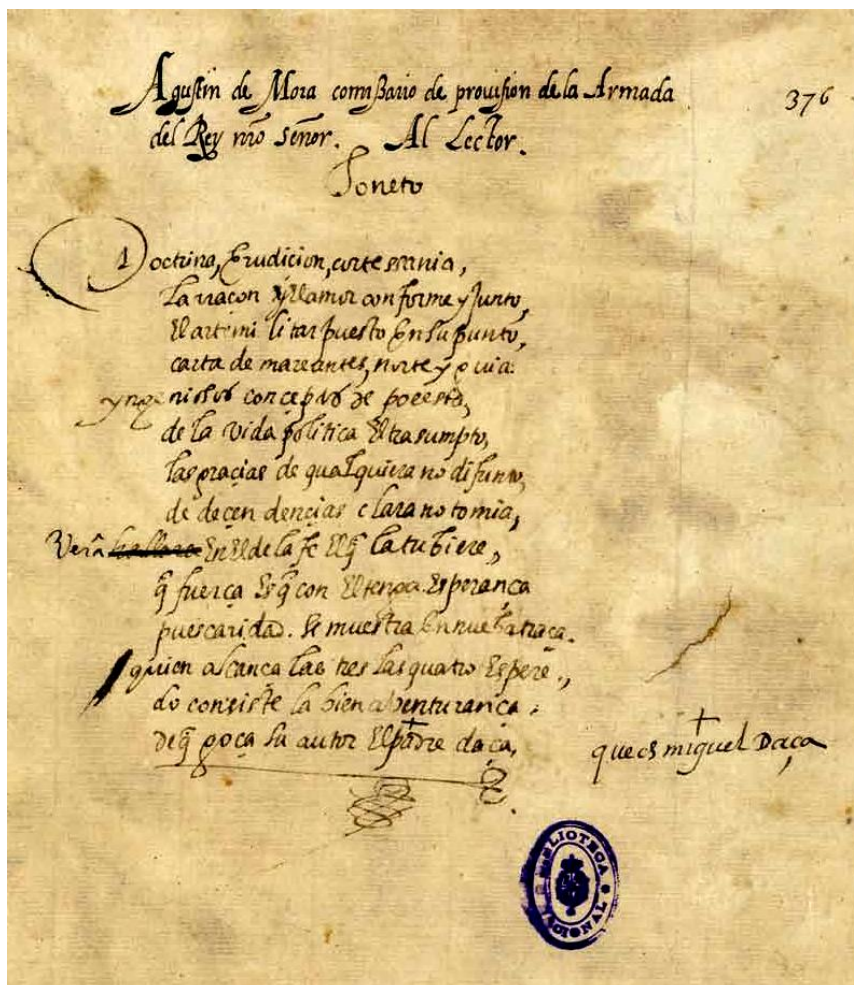 Agustin de Mora comissario de prouision de la Armada
376
del Rey nro señor. Al Lector.
Soneto
Doctrina, Erudicion, cortessania,
La raçon y el amor conforme y Junto,
El arte militar puesto En su punto,
carta de mareantes, norte y guia.
yngeniosos conceptos de poessia,
de la vida política El trasumpto,
las gracias de qualquiera no difunto,
de deçendençias clara notomia,
Verá hallara En El de la fe El q̃ la tubiere,
q̃ fuerça Es q̃ con El tenga Esperança
pues caridad se muestra En nuebatraça.
quien alcança las tres las quatro Espere.,
do consiste la bien abenturança.
de q̃ goça su autor El padre daça,
que es miguel Daça
BIBLIOTECA NACIONAL